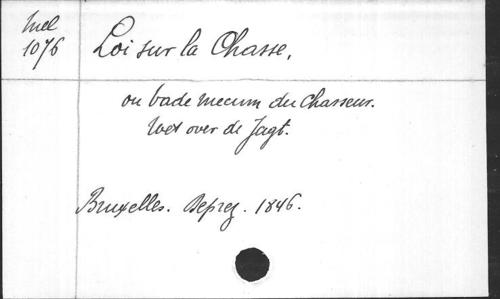 Mel
1076
Loi sur la Chasse,
ou vade mecum du Chasseur.
Wet over de Jagt.
Bruxelles. Deprez. 1846.